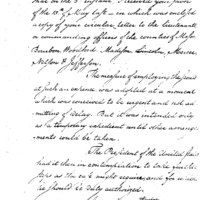 that on the 8th instant, I received your favor
of the 10th of May last — in which was enclosed
a copy of your circular letter to the lieutenants
or commanding officers of the counties of
Bourbon, Woodford, Madison, Lincoln, Mercer,
Nelson & Jefferson.
The measure of employing the
at such an expence was adopted at a moment
which was conceived to be urgent and not ad
mitting of delay. But it was intended only
as a temporary expedient until other arrange-
ments could be taken.
The President of the United States
had it then in contemplation to
as the might require and for which
he should be duly authorized.